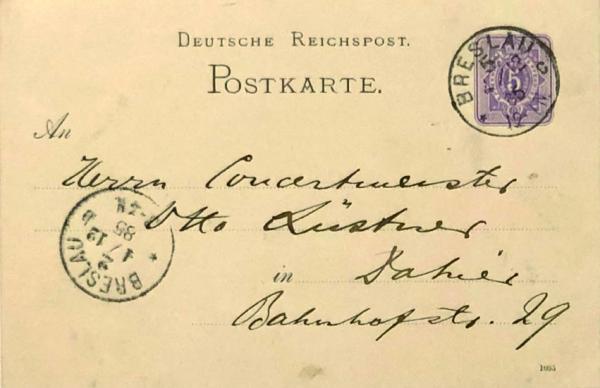 DEUTSCHE REICHSPOST.
POSTKARTE.
BRESLAU
5
An
Herrn Concertmeister
Otto Lüstner
in Dahier
Bahnhofstr. 29
BRESLAU
17 12
85
1085